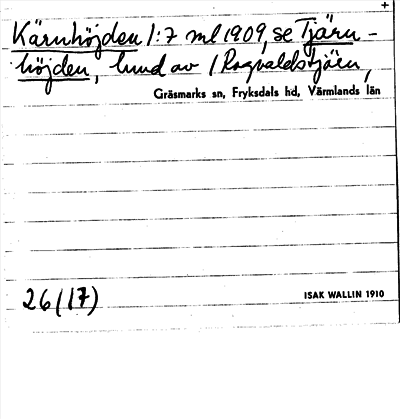 +
Kärnhöjden 1:7 ml 1909, se Tjärn-
höjden, hmd av 1 Ragvaldstjärn,
Gräsmarks sn, Fryksdals hd, Värmlands län
26 (17)
ISAK WALLIN 1910